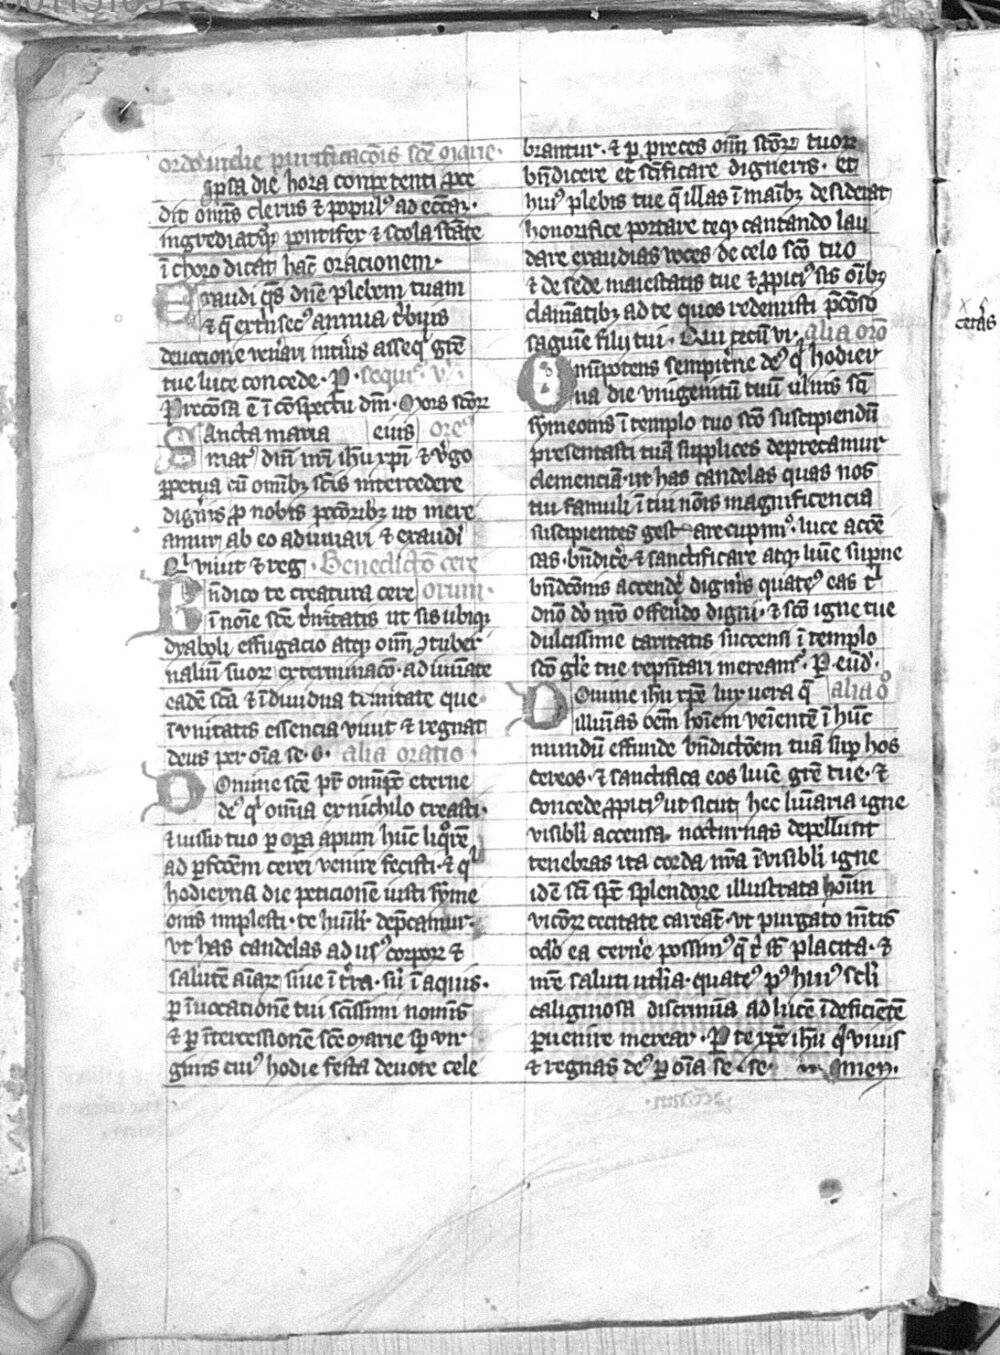 ordo in die purificacōis scē marie.
Ipsa die hora conpetenti p̄ce
dit omīs clerus ⁊ populꝰ ad eccāꝫ.
ingrediatqꝫ pontifex ⁊ scola stāte
ī choro dicat hāc oracionem.
Exaudi q̄s dn̄e plebem tuam
⁊ q̄ extīsecꝰ annua tͥbuis
deuocione ven̄ari int̾ius asseqͥ gr̄e
tue luce concede. P. sequit̾ v̾.
Precōsa ē ī cōspectu dn̄i. Mors scōꝝ
Sancta maria eius ore
mat̾ dn̄i nr̄i ihū xp̄i ⁊ v̾go
ꝑpetua cū om̄ibꝫ scīs intercedere
dign̾is ꝓ nobis pccōribꝫ ut mere
amur ab eo adiuuari ⁊ exaudi
Qͥ viuit ⁊ reg. Benedictō cere
Bn̄dico te creatura cere orum.
ī noīe scē tͥnitatis ut sis ubiqꝫ
dyaboli effugacio atqꝫ om̄ ꝯtuber
naliū suoꝝ exterminacō. adiuuāte
eadē scā ⁊ īdiuidua trinitate que
ī vnitatis essencia viuit ⁊ regnat
deus per oīa se. s. alia oratio
Domine scē pr̄ omīp̄s eterne
deꝰ qͥ omīa ex nichilo creasti.
⁊ iussu tuo ꝑ oꝑa apum hūc liqͦrē
ad ꝑfcōem cerei venire fecisti. ⁊ qͥ
hodierna die peticionē iusti syme
onis implesti. te hūilr̄. dep̄camur.
vt has candelas ad usꝰ corpoꝝ ⁊
salutē aīaꝝ siue ī tr̄ra. siū ī aquis.
ꝑ īuocationē tui scīssimi nomīs
⁊ ꝑ īt̾cessionē scē marie sp̄ vir
ginis cuiꝰ hodie festa deuote cele
brantur. ⁊ ꝑ preces om̄ scōꝝ tuoꝝ
bn̄dicere et scīficare digneris. et
huiꝰ plebis tue q̄ illas ī maībꝫ desiderat
honorifice portare teqꝫ cantando lau
dare exaudias voces de celo scō tuo
⁊ de sede maiestatis tue ⁊ ꝓpiciꝰ sis oībꝫ
clamātibꝫ ad te quos redemisti p̄cōso
saguīe filij tui. Qui tecū vi. alia orō
Omīpotens sempit̾ne deꝰ qͥ hodier
na die vnigenitū tuū ulnis scī
symeonis ī templo tuo scō suscipiendū
presentasti tuā supplices deprecamur
clemenciā. ut has candelas quas nos
tui famuli ī tui nōis magnificencia
suscipientes gestare cupimꝰ. luce accē
sas. bn̄dice̾ ⁊ sanctificare atqꝫ luīe sup̾ne
bn̄dcōnis accende̾ dign̾is quatēꝰ eas tͥ
dn̄o dō nr̄o offerendo digni. ⁊ scō igne tue
dulcissime caritatis succensi ī templo
scō gl̄e tue rep̄ntari mereamꝰ. P. eūd̾.
Domine ihū xp̄e lux vera q̄ alia oͦ
illuīas oēm hoīem veīentē ī hūc
mundū effunde bn̄dictōem tuā sup̾ hos
cereos. ⁊ sanctifica eos luīe gr̄e tue. ⁊
concede ꝓpiciꝰ ut sicut hec luīaria igne
visibli accensa. nocturnas depellunt
tenebras ita corda nr̄a īvisibli igne
id ē scī sp̄c splendore illustrata hoīun
vicōꝝ cecitate careāt. vt purgato mētis
oclo ea cern̾e possimꝰ q̄ tͥ st̄ placita. ⁊
nr̄e saluti utlia. quateꝰ pꝰ huiꝰ scl̄i
caliginosa discrimīa ad lucē īdeficiētē
ꝑuenire mereat̾. P te xp̄e ihū qͥ viuis
⁊ regnas deꝰ ꝑ oīa se. se. Amen.
ceras